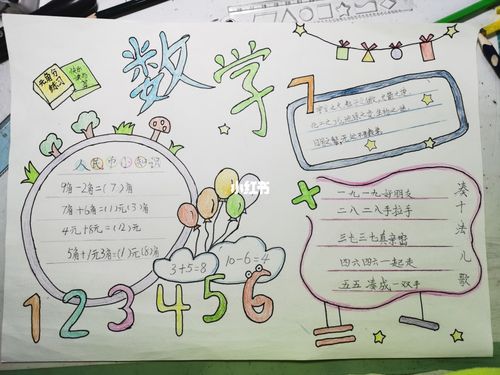 数学
元角分
练习
人民币小知识
9角-2角=(7)角
7角+6角=(1)元(3)角
4元+8元=(12)元
5角+1元3角=(1)元(8)角
小红书
3+5=8
10-6=4
1 2 3 4 5 6
7
日用之繁,无处不用数学
凑十法儿歌
一九一九好朋友
二八二八手拉手
三七三七真亲密
四六四六一起走
五五凑成一双手